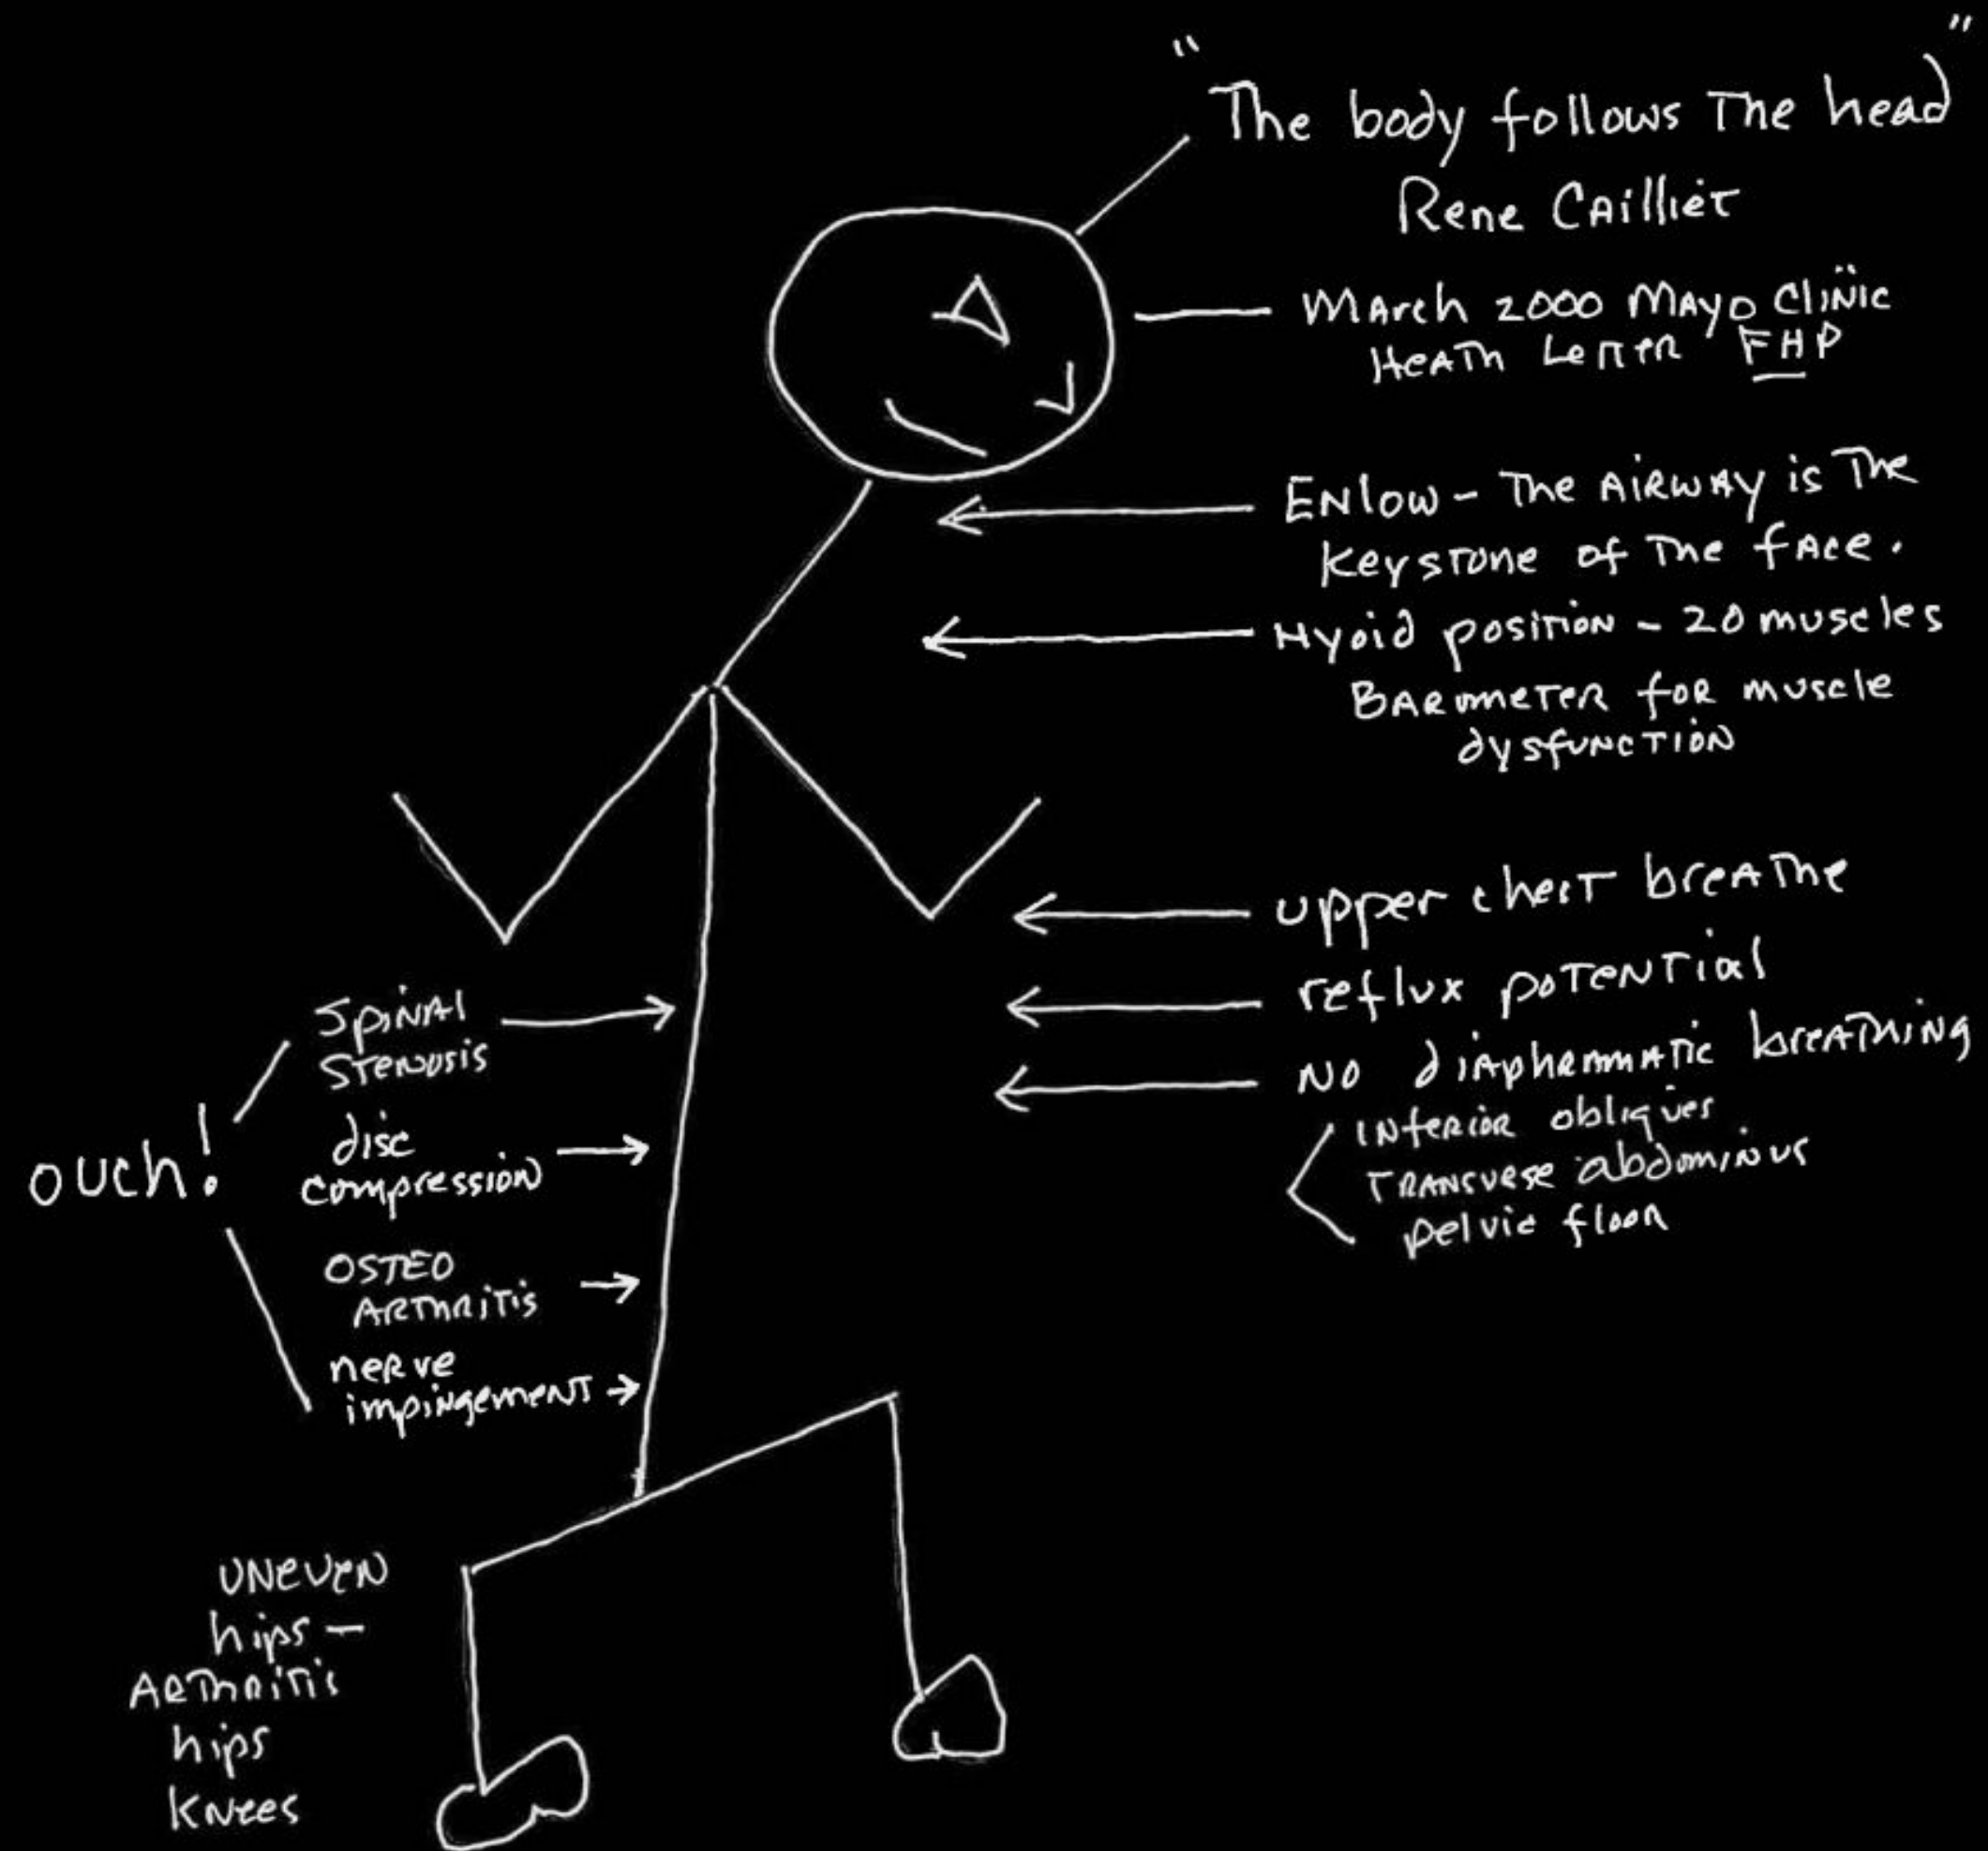 "The body follows The head"
Rene CAilliet
MArch 2000 MAYO CliNic
HeATh LeTTeR FHP
ENlow - The AiRWAY is The
KeysTone of The fAce.
Hyoid posiTioN - 20 muscles
BARomeTeR foR muscle
dysfuNcTioN
upper chesT breAThe
reflux poTeNTial
NO diAphemmATic breAThiNg
INfeRioR obliques
TRANsvese abdominus
pelvic flooR
SpiNAl
STeNosis
disc
compression
ouch!
OSTEO
ARThRiTis
neRve
impiNgemeNT
UNeveN
hips -
ARThRiTis
hips
KNees